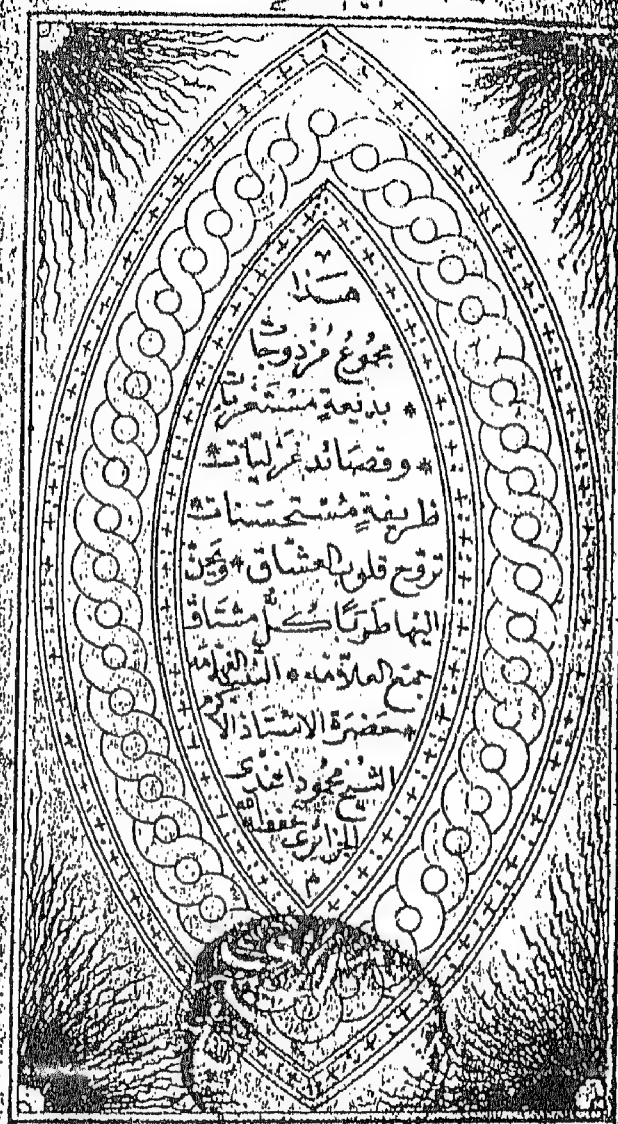 هَذَا
مجمُوعُ مُزْدَوجَات
* بديعَةٍ مُسْتَعذبَات
* وقصَائد غَزَليّات *
ظريفةٍ مُسْتحسَنات *
تروّح قلوب العشّاق * ويحنّ
اليها طَرَبًا كلّ مشتاق
جمع العلاّمه * الفهّامه
* حضرَة الاسْتَاذ الاكرم
الشيخ محمُود افندى
الجزائرى حفظه الله
م